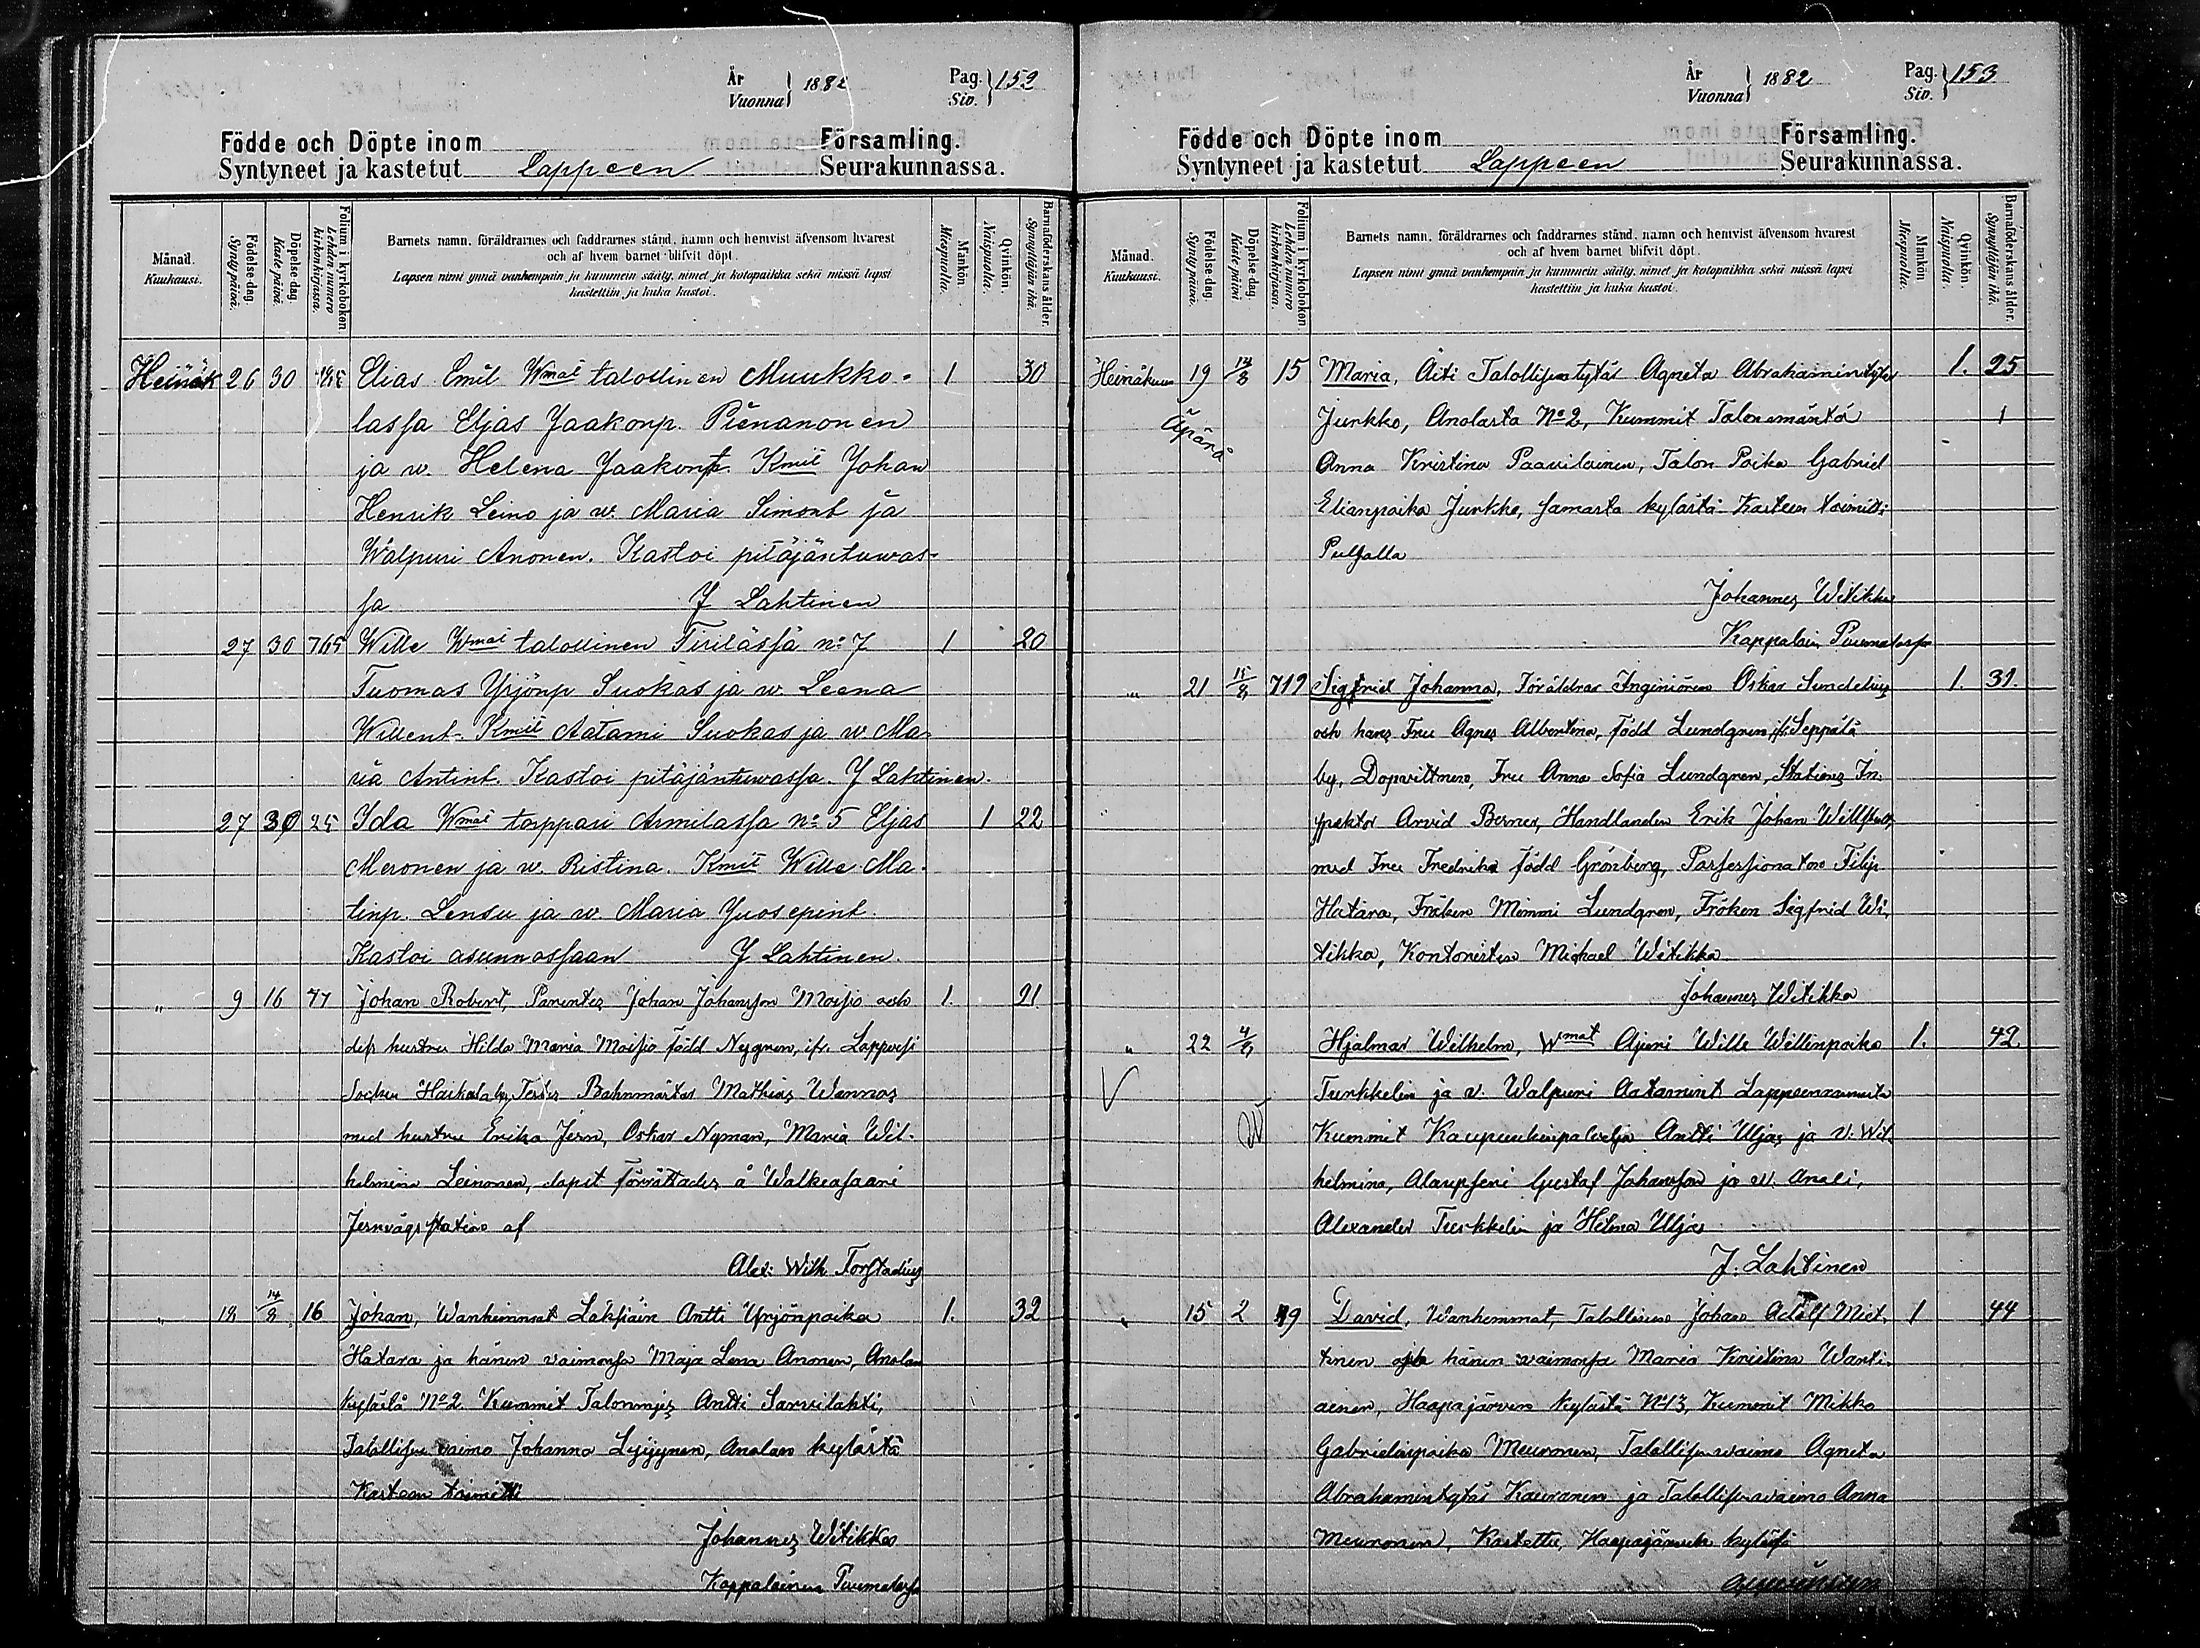 År
Vuonna } 1882
Pag.
Siv. } 152
Födde och Döpte inom Församling.
Syntyneet ja kastetut Lappeen Seurakunnassa.
Månad. Kuukausi.
Födelse dag. Synty päivä.
Döpelse dag. Kaste päivä.
Folium i kyrkoboken Lehden numero kirkonkirjassa.
Barnets namn, föräldrarnes och faddrarnes stånd, namn och hemvist äfvensom hvarest
och af hvem barnet blifvit döpt.
Lapsen nimi ynnä vanhempain ja kummein sääty, nimet ja kotopaikka sekä missä lapsi
kastettiin ja kuka kastoi.
Mankön. Miespuolia.
Qvinkön. Naispuolia.
Barnaföderskans ålder. Synnyttäjän ikä.
Heinäk 26 30 Elias Emil Wmat talollinen Muukko- 1 30
lassa Eljas Jaakonp. Pienanonen
ja w. Helena Jaakont. Kmit Johan
Henrik Leino ja w. Maria Simont ja
Walpuri Anonen. Kastoi pitäjäntuwas-
sa J Lahtinen
27 30 765 Wille Wmat talollinen Tirilässä no 7 1 20
Tuomas Yrjönp Suokas ja w. Leena
Willent. Kmit Aatami Suokas ja w Ma-
ria Antint. Kastoi pitäjäntuwassa. J Lahtinen.
27 30 25 Ida Wmat torppari Armilassa no 5 Eljas 1 22
Meronen ja w. Ristina. Kmit Wille Ma-
tinp. Lensu ja w. Maria Juosepint.
Kastoi asunnossaan J Lahtinen.
" 9 16 77 Johan Robert, Parentes Johan Johansson Moisio och 1. 21
dess hustru Hilda Maria Moisio född Nygren, ifr. Lappvesi
Socken Haikala by, Testes Bahnmästar Mathias Wannas
med hustru Erika Jern, Oskar Nyman, Maria Wil-
helmina Leinonen, dopet förrättades å Walkeasaari
Jernvägsstation af
Alex. Wilh Forstadius
" 18 14/8 16 Johan, Wanhemmat Läksiäin Antti Yrjönpoika 1. 32
Hatara ja hänen vaimonsa Maja Lena Anonen, Anolan
kylästä No 2. Kummit Talonmies Antti Sarvilahti,
Talollisen vaimo Johanna Lyijynen, Anolan kylästä
Kasteen toimitti
Johannes Witikka
Kappalainen Puumalassa
År
Vuonna } 1882
Pag.
Siv. } 153
Födde och Döpte inom Församling.
Syntyneet ja kastetut Lappeen Seurakunnassa.
Månad. Kuukausi.
Födelse dag. Synty päivä.
Döpelse dag. Kaste päivä
Folium i kyrkoboken Lehden numero kirkonkirjassa.
Barnets namn, föräldrarnes och faddrarnes stånd, namn och hemvist äfvensom hvarest
och af hvem barnet blifvit döpt.
Lapsen nimi ynnä vanhempain ja kummein sääty, nimet ja kotopaikka sekä missä lapsi
kastettiin ja kuka kastoi.
Mankön. Miespuolia.
Qvinkön. Naispuolia.
Barnaföderskans ålder. Synnyttäjän ikä.
Heinäkuu 19 14/8 15 Maria, Äiti Talollisentytär Agneta Abrahamintytär 1. 25
Äpärä Jurkko, Anolasta No 2, Kummit Talonemäntä 1
Anna Kristina Paavilainen, Talon Poika Gabriel
Elianpoika Jurkko, samasta kylästä. Kasteen toimitti
Pulsalla
Johannes Witikka
Kappalain Puumalassa
" 21 15/8 719 Sigfrid Johanna, Föräldrar Ingeniören Oskar Sundelius 1. 31.
och hans Fru Agnes Albertina, född Lundgren, ifr. Seppälä
by, Dopvittnen, Fru Anna Sofia Lundgren, Stations In-
spektor Arvid Berner, Handlanden Erik Johan
med Fru Fredrika född Grönberg, Possessionaten Filip
Hatara, Fröken Mimmi Lundgren, Fröken Sigfrid Wi-
tikka, Kontoristen Michael Witikka
Johannes Witikka
" 22 4/8 Hjalmar Wilhelm, Wmat Ajuri Wille Willenpoika 1. 42.
V Turkkelin ja v. Walpuri Aatamint Lappeenrannasta
Kummit Kaupunkinpalvelja Antti Uljas ja v. Wil-
helmina, Alaupseri Gustaf Johansson ja w. Anali,
Alexander Turkkelin ja Helma Uljas
J. Lahtinen
" 15 2 79 David, Wanhemmat, Talollinen Johan Adolf Miet- 1 44
tinen hänen vaimonsa Maria Kristina Warti-
ainen, Haapajärven kylästä No 13, Kummit Mikko
Gabrielinpoika Meuronen, Talollisenvaimo Agneta
Abrahamintytär Kauranen ja Talollisenvaimo Anna
Meuronen, Kastettu, Haapajärven kylässä